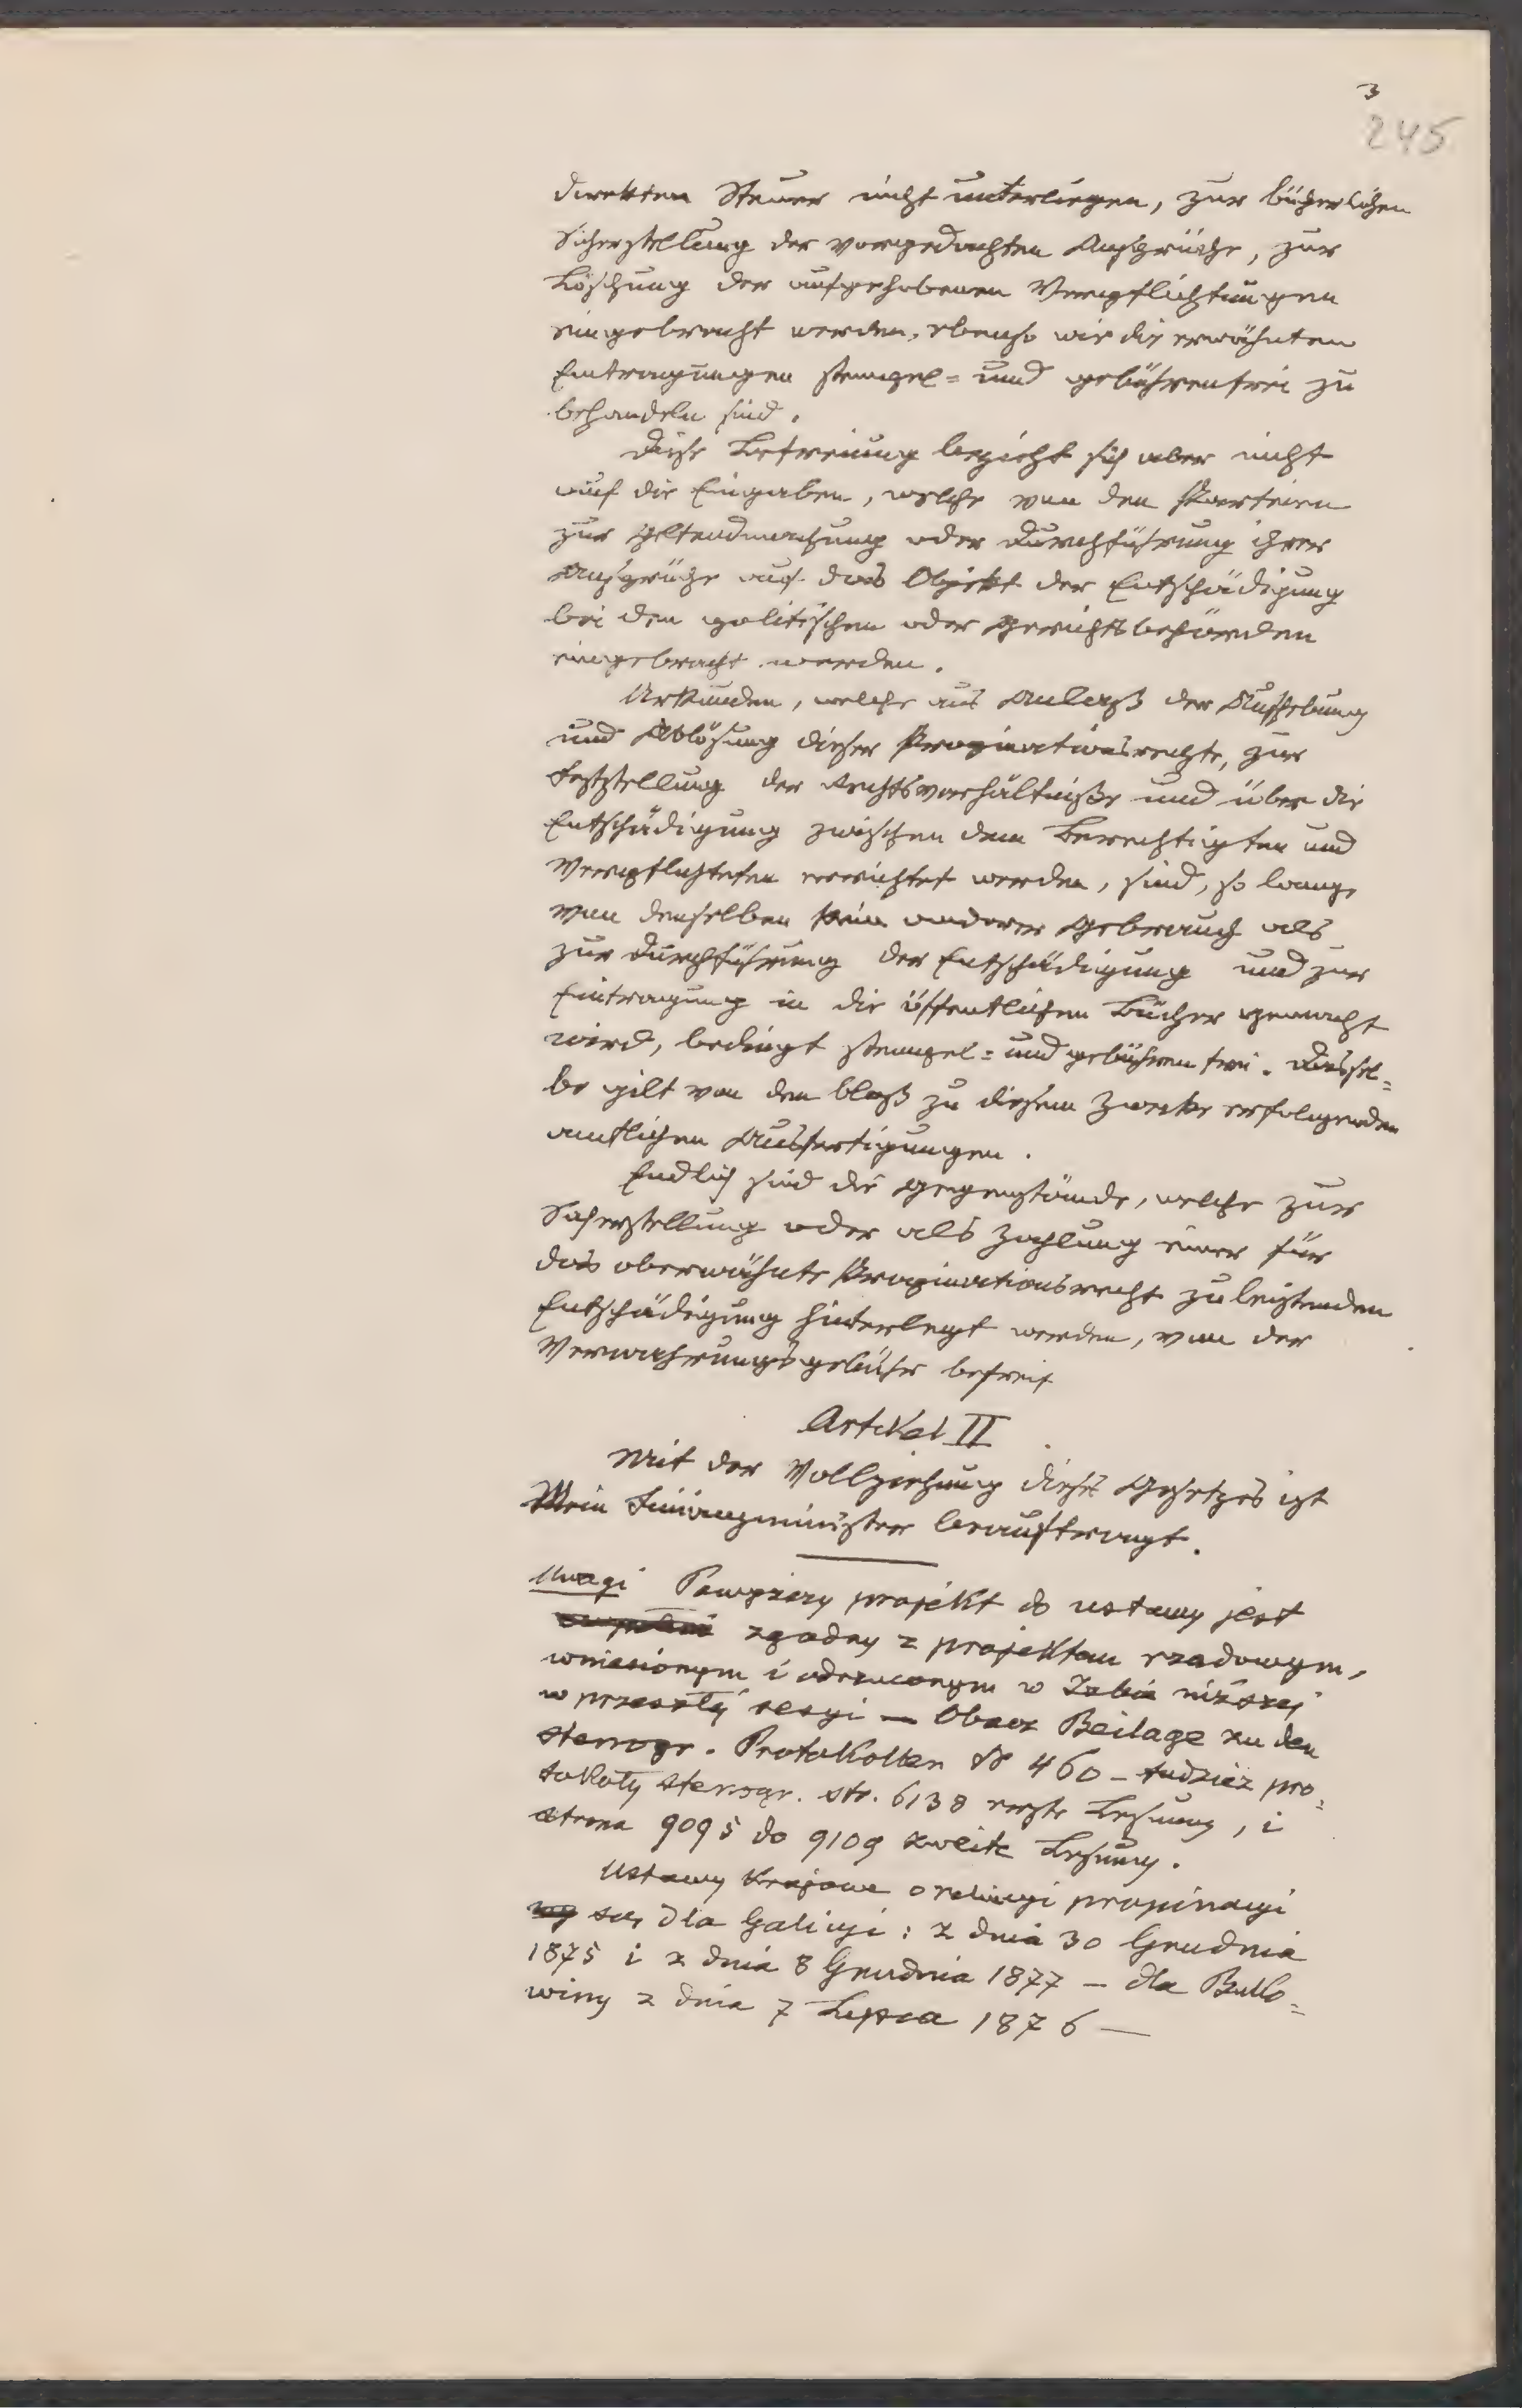 3
245
direkten Steuer nicht unterliegen, zur bücherlichen
Sicherstellung der vorgedachten Ansprüche, zur
Löschung der aufgehobenen Verpflichtungen
eingebracht werden, ebenso wie die erwähnten
Eintragungen stempel= und gebührenfrei zu
behandeln sind.
Diese Befreiung bezieht sich aber nicht
auf die Eingaben, welche von den Parteien
zur Geltendmachung oder Durchführung ihrer
Ansprüche auf das Objekt der Entschädigung
bei den politischen oder Gerichtsbehörden
eingebracht werden.
Urkunden, welche aus Anlaß der Aufhebung
und Ablösung dieser Propinationsrechte, zur
Feststellung der Rechtsverhältniße und über die
Entschädigung zwischen dem Berechtigten und
Verpflichteten errichtet werden, sind, so lange
von denselben kein anderer Gebrauch als
zur Durchführung der Entschädigung und zur
Eintragung in die öffentlichen Bücher gemacht
wird, bedingt stempel= und gebührenfrei. Dassel=
be gilt von den bloß zu diesem Zwecke erfolgenden
amtlichen Ausfertigungen.
Endlich sind die Gegenstände, welche zur
Sicherstellung oder als Zahlung einer für
das oberwähnte Propinationsrecht zu leistenden
Entschädigung hinterlegt werden, von der
Verwahrungsgebühr befreit
Artikel II
Mit der Vollziehung dieses Gesetzes ist
Mein Finanzminister beauftragt.
Uwagi Powyższy projekt do ustawy jest
zgodny z projektem rządowym,
wniesionym i odrzuconym w Izbie niższej
w przeszłej sesyi — Obacz Beilage zu den
stenogr. Protokollen № 460 – tudzież pro=
tokoły stenogr. str. 6138 erste Lesung, i
strona 9095 do 9109 zweite Lesung.
Ustawy krajowe o propinacyi
są, dla Galicyi: z dnia 30 Grudnia
1875 i z dnia 8 Grudnia 1877 – dla Buko=
winy z dnia 7 Lipca 1876 —